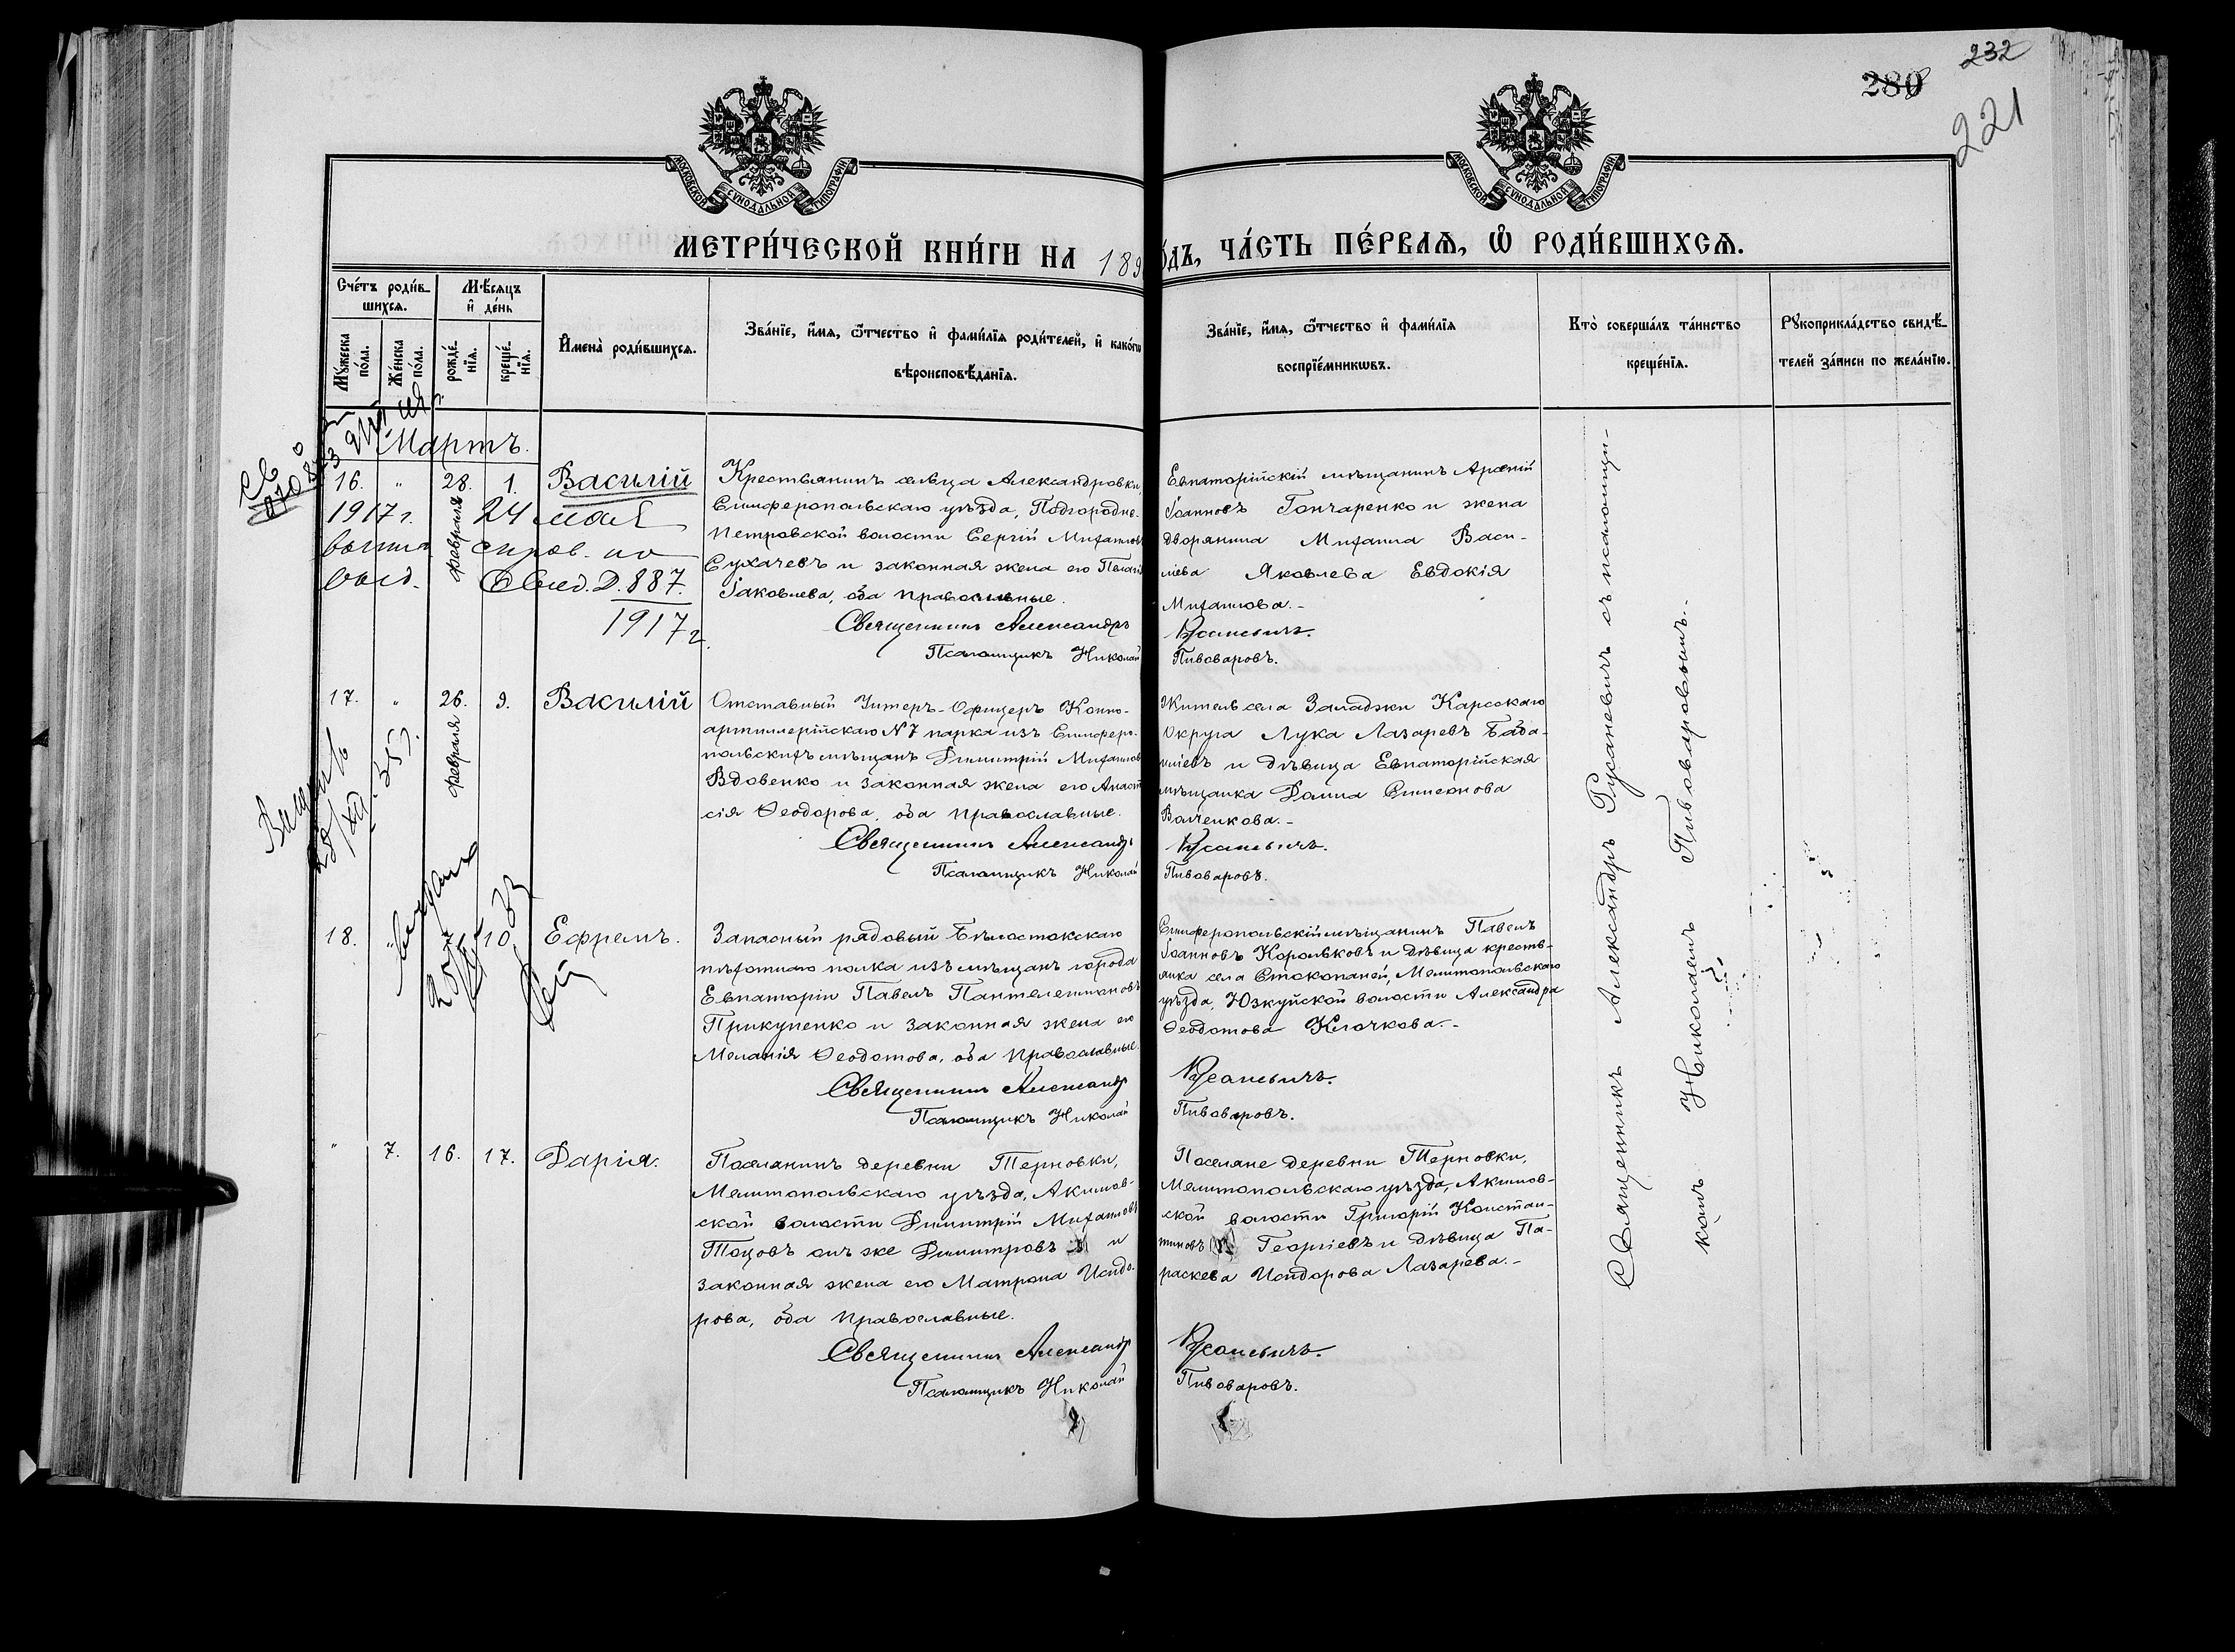 232
280
221
МОСКОВСКОЙ СѴНОДАЛЬНОЙ ТИПОГРАФІИ
МОСКОВСКОЙ СѴНОДАЛЬНОЙ ТИПОГРАФІИ
МЕТРИ́ЧЕСКОЙ КНИ́ГИ НА 189
О́ДЪ, ЧА́СТЬ ПЕ́РВАѦ, Ѿ РОДИ́ВШИХСѦ.
Сче́тъ роди́в-
шихсѧ.
Мѣсѧцъ
и҆ де́нь
Мꙋ́жеска
по́ла.
Же́нска
по́ла.
рожде́-
нїѧ.
креще́-
нїѧ.
И҆мена̀ роди́вшихсѧ.
Зва́нїе, и҆́мѧ, ѻ҆́тчество и҆ фами́лїѧ роди́телей, и҆ како́гѡ
вѣроисповѣ́данїѧ.
Зва́нїе, и҆́мѧ, ѻ҆́тчество и҆ фами́лїѧ
воспрїе́мникѡвъ.
Кто̀ соверша́лъ та́инство
креще́нїѧ.
Рꙋкоприкла́дство свидѣ́-
телей за́писи по жела́нїю.
Мартъ.
16. " 28. 1. Василій
февраля
1917 г. 24 мая
887.
1917 г.
Крестьянинъ сельца Александровки,
Симферопольскаго уѣзда, Подгородне-
Петровской волости Сергій Михаиловъ
Сухачевъ и законная жена его Пелагія
Іаковлева, оба православные.
Священникъ Александръ
Псаломщикъ Николай
Евпаторійскій мѣщанинъ Арсеній
Іоанновъ Гончаренко и жена
дворянина Михаила Васи-
лiева Яковлева Евдокія
Михаилова.-
Русаневичъ.
Пивоваровъ.
17. " 26. 9. Василій
февраля
Отставный Унтеръ-Офицеръ Конно-
артиллерійскаго № 7 парка изъ Симферо-
польскихъ мѣщанъ Димитрій Михаиловъ
Вдовенко и законная жена его Анаста
сія Ѳеодорова, оба православные.
Священникъ Александръ
Псаломщикъ Николай
Житель села Заладжи Карсскаго
Округа Лука Лазаревъ Баба-
шіевъ и дѣвица Евпаторійская
мѣщанка Домна Симеонова
Волченкова.-
Русаневичъ.
Пивоваровъ.
18. " 10. Ефремъ.
Запасный рядовый Бѣлостокскаго
пѣхотнаго полка изъ мѣщанъ города
Евпаторіи Павелъ Пантелеимоновъ
Прикупенко и законная жена его
Меланія Ѳеодотова, оба православные.
Священникъ Александръ
Псаломщикъ Николай
Симферопольскій мѣщанинъ Павелъ
Іоанновъ Корольковъ и дѣвица кресть-
янка села Стокопаней, Мелитопольскаго
уѣзда, Юзкуйской волости Александра
Ѳеодотова Клочкова.-
Русаневичъ.
Пивоваровъ.
" 7. 16. 17. Дарія.
Поселянинъ деревни Терновки,
Мелитопольскаго уѣзда, Акимов-
ской волости Димитрій Михаиловъ
Тоцовъ онъ же Димитровъ и
законная жена его Матрона Исидо-
рова, оба православные.
Священникъ Александръ
Псаломщикъ Николай
Поселяне деревни Терновки,
Мелитопольскаго уѣзда, Акимов-
ской волости Григорій Констан-
тиновъ Георгіевъ и дѣвица Па-
раскева Исидорова Лазарева.-
Русаневичъ.
Пивоваровъ.
Священникъ Александръ Русаневичъ съ псаломщи-
комъ Николаемъ Пивоваровымъ.-